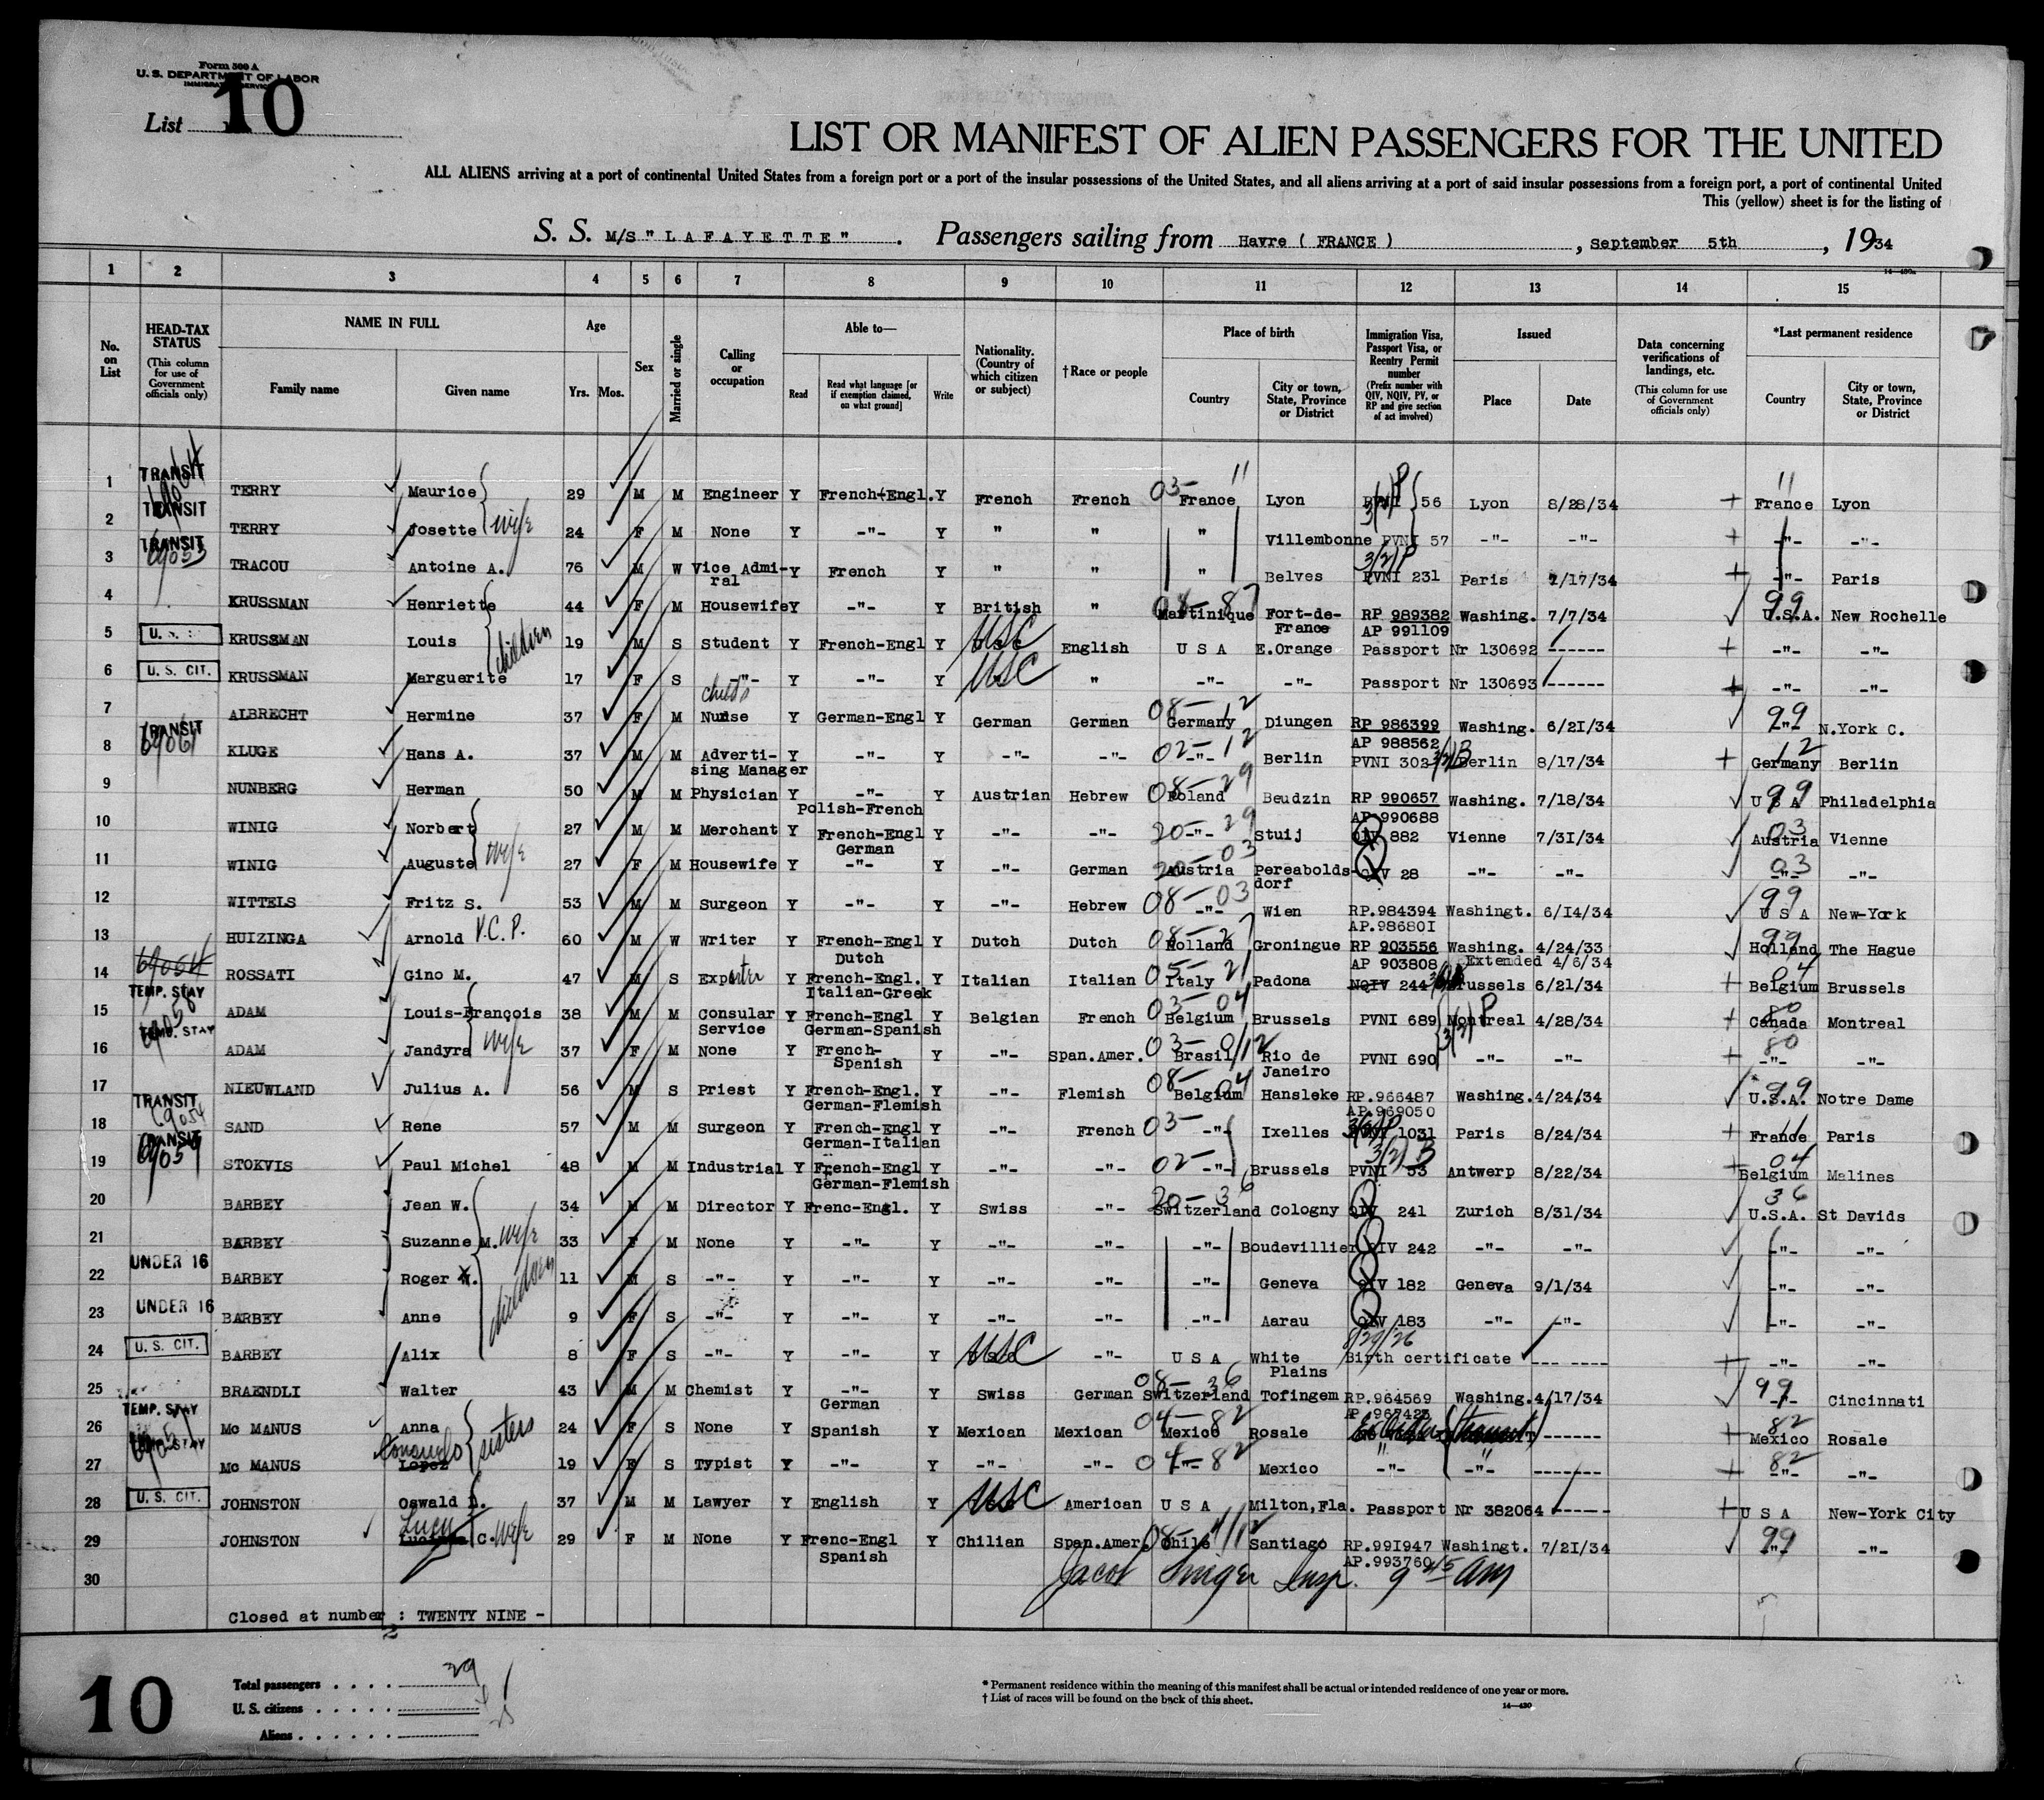 Form 500 A
U. S. DEPARTMENT OF LABOR
IMMIGRATION SERVICE
List 10
LIST OR MANIFEST OF ALIEN PASSENGERS FOR THE UNITED
ALL ALIENS arriving at a port of continental United States from a foreign port or a port of the insular possessions of the United States, and all aliens arriving at a port of said insular possessions from a foreign port, a port of continental United
This (yellow) sheet is for the listing of
S. S. M/S "LAFAYETTE". Passengers sailing from Havre ( FRANCE ), September 5th, 1934
1 2 3 4 5 6 7 8 9 10 11 12 13 14 15
No. on List
HEAD-TAX STATUS (This column for use of Government officials only)
NAME IN FULL Family name Given name
Age Yrs. Mos.
Sex
Married or single
Calling or occupation
Able to— Read Read what language [or if exemption claimed, on what ground] Write
Nationality. (Country of which citizen or subject)
†Race or people
Place of birth Country City or town, State, Province or District
Immigration Visa, Passport Visa, or Reentry Permit number (Prefix number with QIV, NQIV, PV, or RP and give section of act involved)
Issued Place Date
Data concerning verifications of landings, etc. (This column for use of Government officials only)
*Last permanent residence Country City or town, State, Province or District
1 TRANSIT TERRY Maurice 29 M M Engineer Y French-Engl. Y French French 03- 11 France Lyon 56 Lyon 8/28/34 + 11 France Lyon
2 TRANSIT TERRY Josette wife 24 F M None Y -"- Y " " " Villembonne PVNI 57 -"- -"- + -"- -"-
3 TRANSIT 69053 TRACOU Antoine A. 76 M W Vice Admiral Y French Y " " " Belves 3/2/P PVNI 231 Paris 7/17/34 + -"- Paris
4 KRUSSMAN Henriette 44 F M Housewife Y -"- Y British " 08-87 Martinique Fort-de-France RP 989382 AP 991109 Washing. 7/7/34 99 U.S.A. New Rochelle
5 U. S. KRUSSMAN Louis children 19 M S Student Y French-Engl Y USC English U S A E.Orange Passport Nr 130692 ------ + -"- -"-
6 U. S. CIT. KRUSSMAN Marguerite 17 F S -"- Y -"- Y USC " -"- -"- Passport Nr 130693 ------ + -"- -"-
7 ALBRECHT Hermine 37 F M child's Nurse Y German-Engl Y German German 08-12 Germany Diungen RP 986399 AP 988562 Washing. 6/21/34 99 -"- N.York C.
8 TRANSIT 69061 KLUGE Hans A. 37 M M Advertising Manager Y -"- Y -"- -"- 02-12 -"- Berlin PVNI 302 Berlin 8/17/34 + 12 Germany Berlin
9 NUNBERG Herman 50 M M Physician Y -"- Polish-French Y Austrian Hebrew 08-29 Poland Beudzin RP 990657 AP 990688 Washing. 7/18/34 99 U S A Philadelphia
10 WINIG Norbert 27 M M Merchant Y French-Engl German Y -"- -"- 20-29 -"- Stuij QIV 882 Vienne 7/31/34 03 Austria Vienne
11 WINIG Auguste wife 27 F M Housewife Y -"- Y -"- German 20-03 Austria Pereaboldsdorf QIV 28 -"- -"- 03 -"- -"-
12 WITTELS Fritz S. 53 M M Surgeon Y -"- Y -"- Hebrew 08-03 -"- Wien RP.984394 AP.986801 Washingt. 6/14/34 99 U S A New-York
13 HUIZINGA Arnold V.C.P. 60 M W Writer Y French-Engl Dutch Y Dutch Dutch 08-27 Holland Groningue RP 903556 AP 903808 Washing. 4/24/33 Extended 4/6/34 99 Holland The Hague
14 ROSSATI Gino M. 47 M S Exporter Y French-Engl. Italian-Greek Y Italian Italian 05-21 Italy Padona NQIV 244 Brussels 6/21/34 + 04 Belgium Brussels
15 TEMP. STAY ADAM Louis-François 38 M M Consular Service Y French-Engl German-Spanish Y Belgian French 03-04 Belgium Brussels PVNI 689 3/2/P Montreal 4/28/34 + 80 Canada Montreal
16 TEMP. STAY ADAM Jandyra wife 37 F M None Y French-Spanish Y -"- Span.Amer. 03- Brasil Rio de Janeiro PVNI 690 -"- -"- + 80 -"- -"-
17 NIEUWLAND Julius A. 56 M S Priest Y French-Engl. German-Flemish Y -"- Flemish 08-04 Belgium Hansleke RP.966487 AP.969050 Washing. 4/24/34 99 U.S.A. Notre Dame
18 TRANSIT 69054 SAND Rene 57 M M Surgeon Y French-Engl German-Italian Y -"- French 03- -"- Ixelles PVNI 1031 Paris 8/24/34 + 11 France Paris
19 TRANSIT STOKVIS Paul Michel 48 M M Industrial Y French-Engl German-Flemish Y -"- -"- 02- -"- Brussels 3/2/B PVNI 53 Antwerp 8/22/34 + 04 Belgium Malines
20 BARBEY Jean W. 34 M M Director Y Frenc-Engl. Y Swiss -"- 20-36 Switzerland Cologny QIV 241 Zurich 8/31/34 36 U.S.A. St Davids
21 BARBEY Suzanne M. wife 33 F M None Y -"- Y -"- -"- -"- Boudevillier QIV 242 -"- -"- -"- -"-
22 UNDER 16 BARBEY Roger W. 11 M S -"- Y -"- Y -"- -"- -"- Geneva QIV 182 Geneva 9/1/34 -"- -"-
23 UNDER 16 BARBEY Anne children 9 F S -"- Y -"- Y -"- -"- -"- Aarau QIV 183 -"- -"- -"- -"-
24 U. S. CIT. BARBEY Alix 8 F S -"- Y -"- Y USC -"- U S A White Plains 8/29/26 Birth certificate --- ---- + -"- -"-
25 BRAENDLI Walter 43 M M Chemist Y -"- German Y Swiss German 08-36 Switzerland Tofingem RP.964569 AP.967425 Washing. 4/17/34 99 -"- Cincinnati
26 TEMP. STAY Mc MANUS Anna 24 F S None Y Spanish Y Mexican Mexican 04-82 Mexico Rosale ------ + 82 Mexico Rosale
27 STAY Mc MANUS Consuelo Lopez sisters 19 F S Typist Y -"- Y -"- -"- 04-82 -"- Mexico -"- -"- ------- + 82 -"- -"-
28 U. S. CIT. JOHNSTON Oswald D. 37 M M Lawyer Y English Y USC American U S A Milton,Fla. Passport Nr 382064 ------ + U S A New-York City
29 JOHNSTON Lucy C. wife 29 F M None Y Frenc-Engl Spanish Y Chilian Span.Amer. 08- Chile Santiago RP.991947 AP.993760 Washingt. 7/21/34 99 -"- -"-
30 Jacob Singer Insp. 9 45 am
Closed at number : TWENTY NINE -
10
Total passengers . . . . 29
U. S. citizens . . . . .
Aliens . . . . . .
* Permanent residence within the meaning of this manifest shall be actual or intended residence of one year or more.
† List of races will be found on the back of this sheet.
14—430